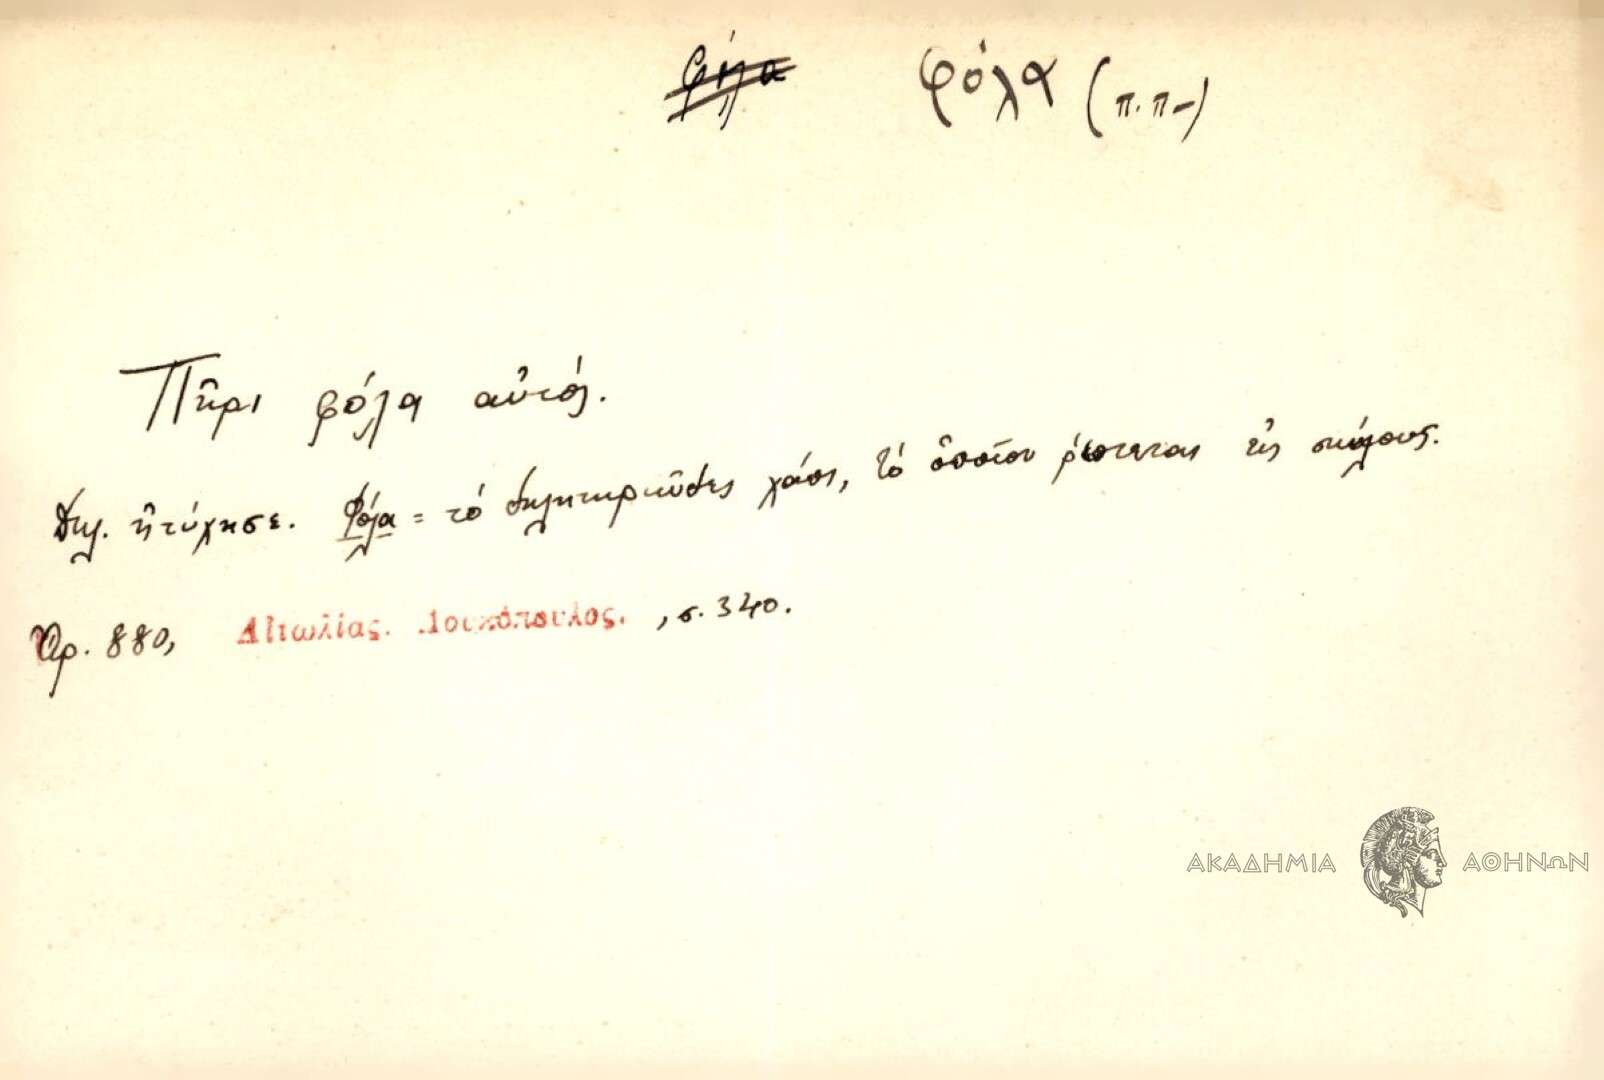 φόλα φόλα (π.π-)
Πῆρι φόλα αὐτός.
Δηλ. ἠτύχησε. Φόλα = τό δηλητηριῶδες χάπι, τό ὁποῖον ρίπτεται εἰς σκύλους.
Ἀρ. 880, Αἰτωλίας. Λουκόπουλος. , σ. 340.
ΑΚΑΔΗΜΙΑ ΑΘΗΝΩΝ